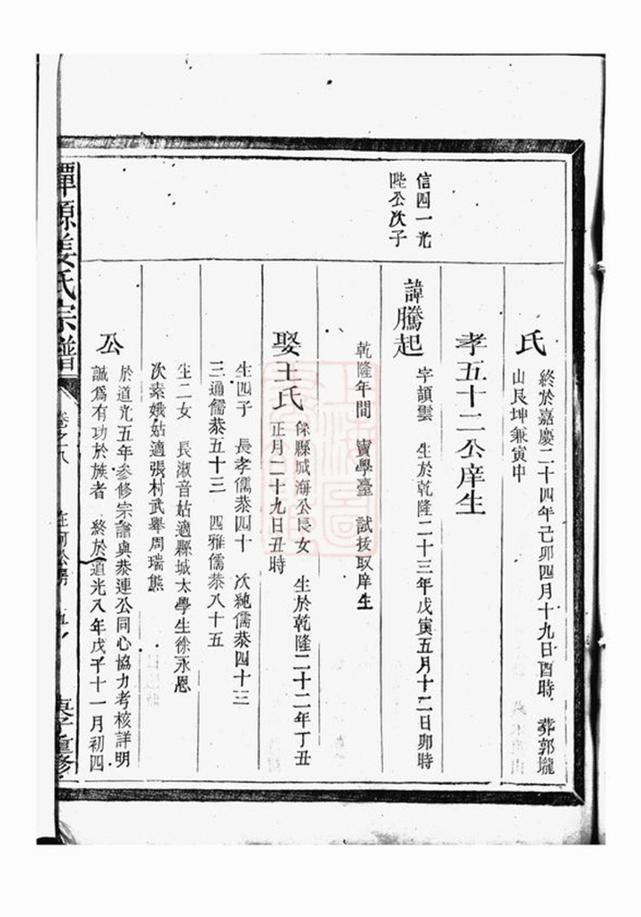 信四一光
陛公次子
氏
終於嘉慶二十四年己卯四月十九日酉時 葬郭壠
山艮坤兼寅申
孝五十二公庠生
諱騰起
字頡雲 生於乾隆二十三年戊寅五月十二日卯時
乾隆年間 竇學臺 試拔取庠生
娶王氏
係縣城海公長女 生於乾隆二十二年丁丑
正月二十九日丑時
生四子 長孝儒恭四十 次純儒恭四十三
三通儒恭五十三 四雅儒恭八十五
生二女 長淑音姑適縣城太學生徐永恩
次素娥姑適張村武舉周瑞熊
公
於道光五年參修宗譜與恭連公同心協力考核詳明
誠爲有功於族者 終於道光八年戊子十一月初四
源姜氏宗譜
卷之八
重修